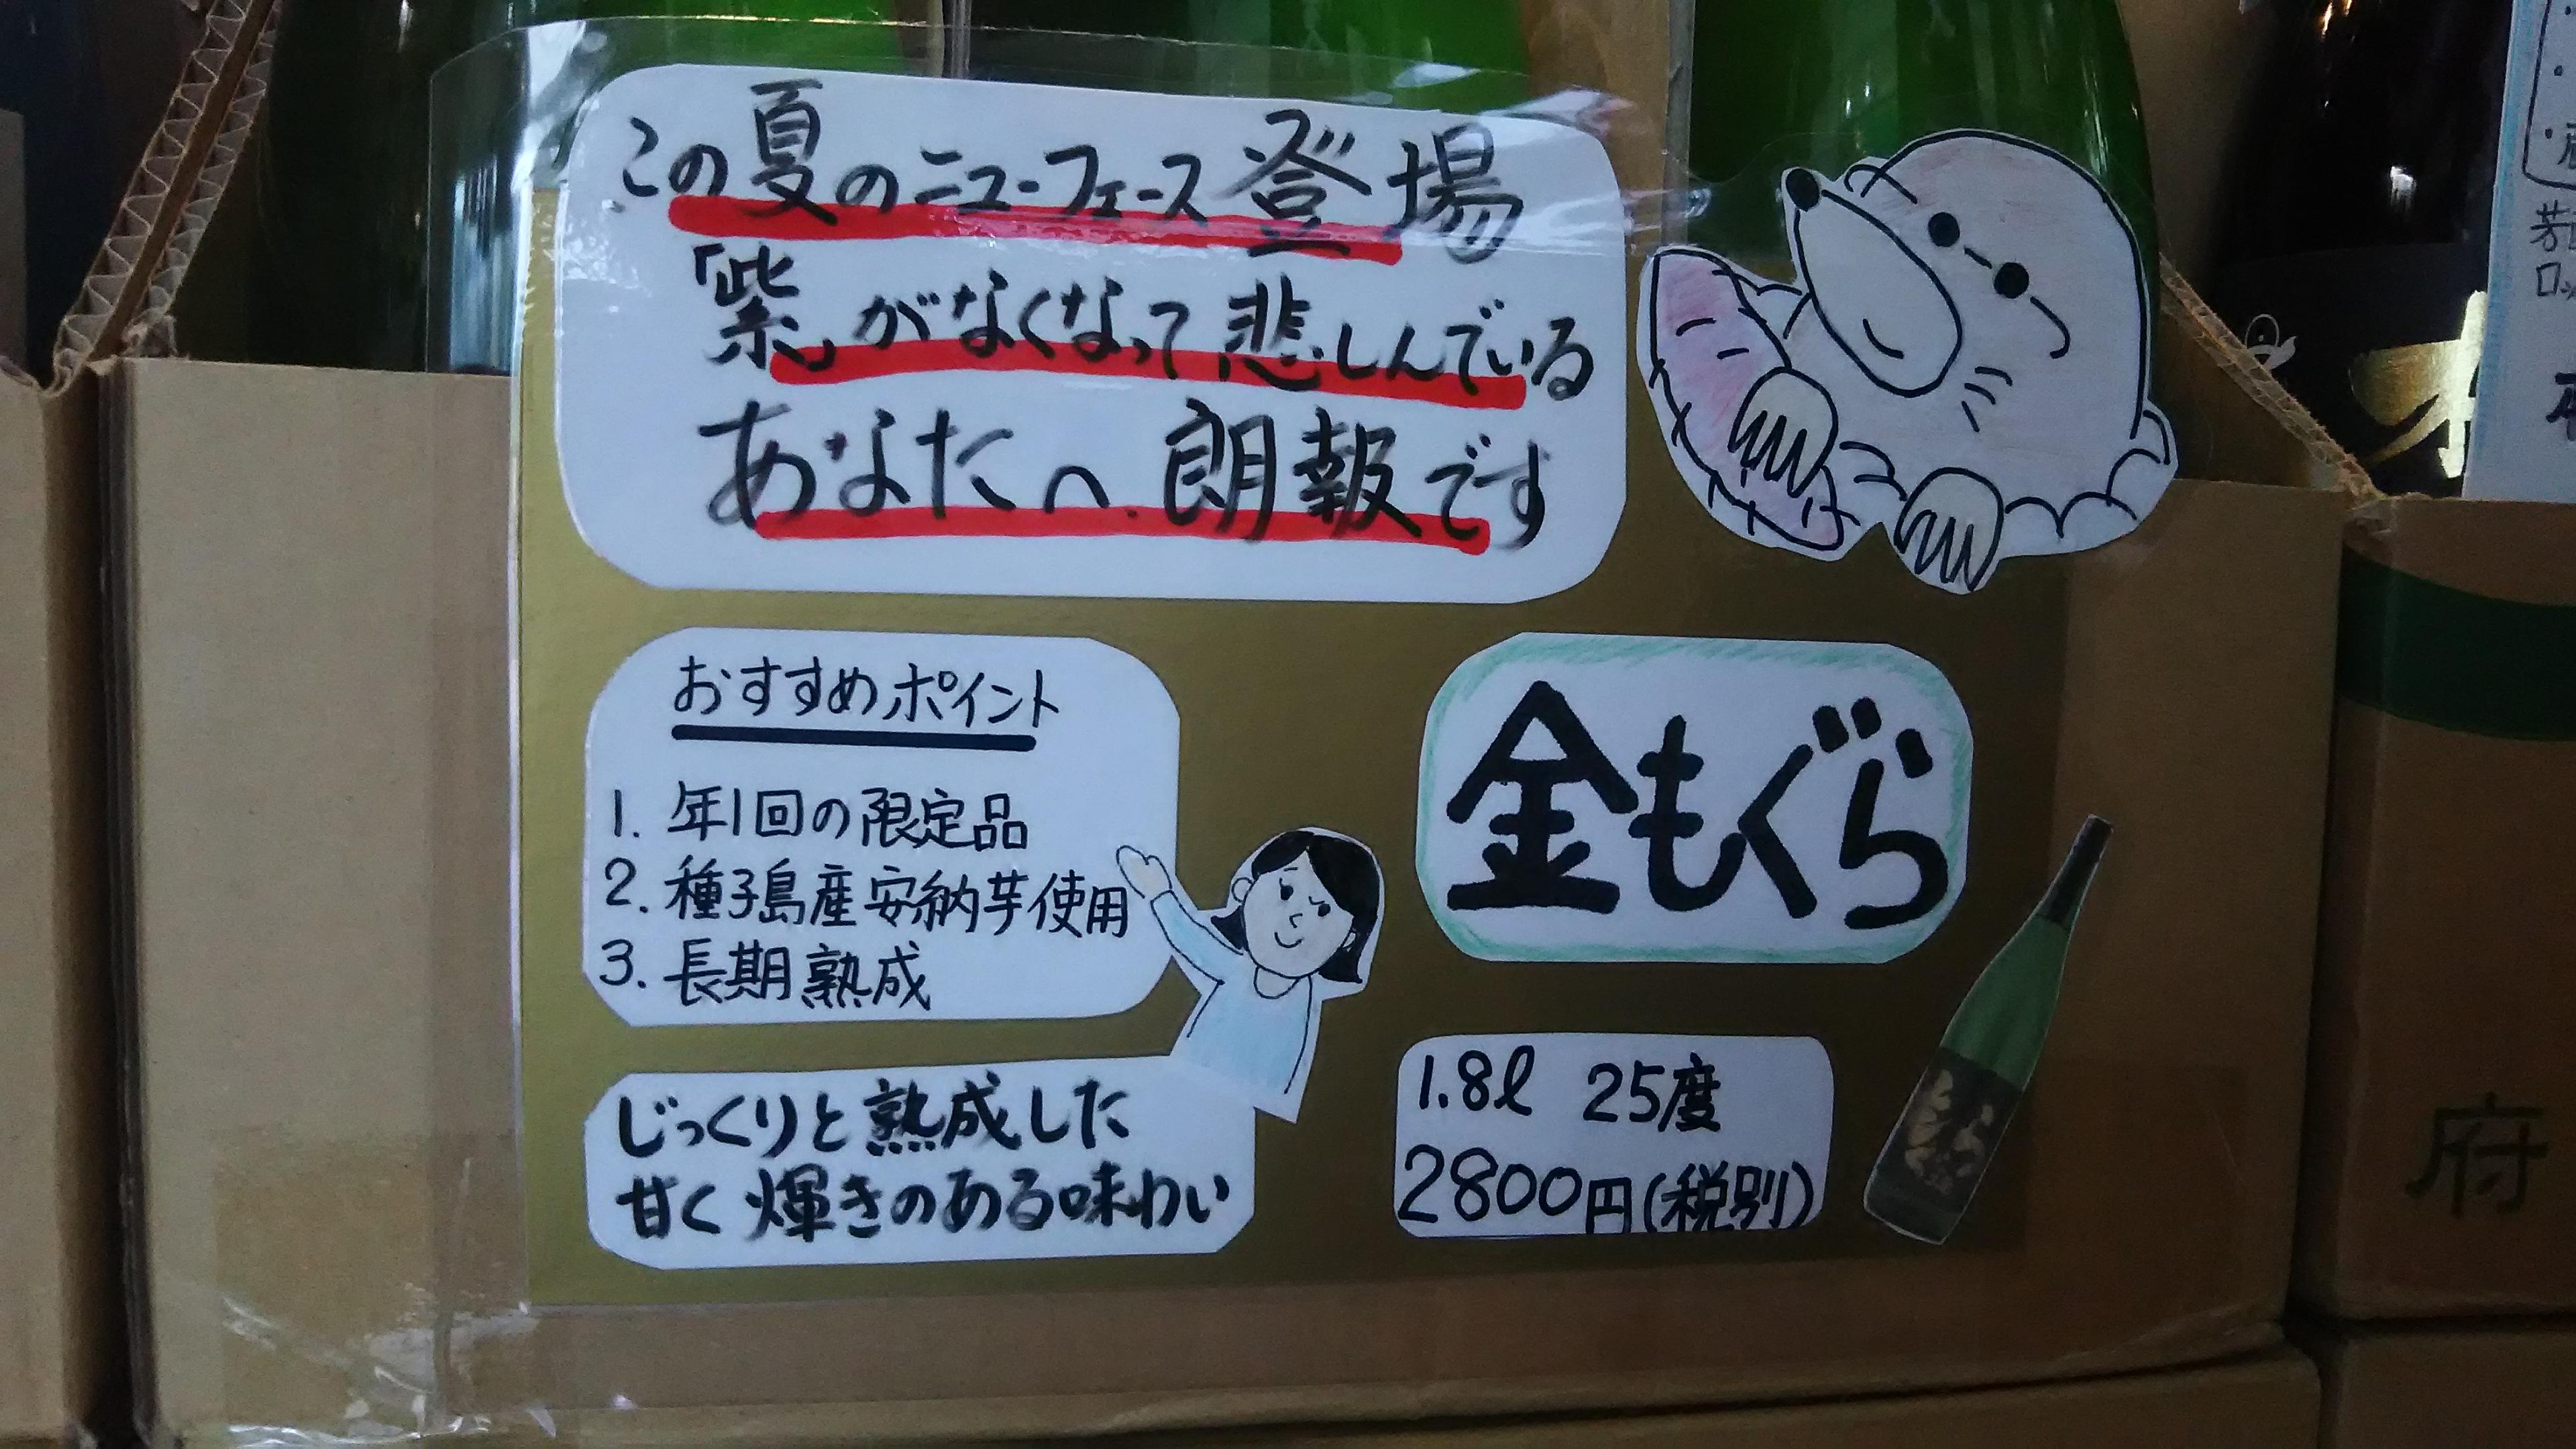 この夏のニューフェース登場
「紫」がなくなって悲しんでいる
あなたへ朗報です
おすすめポイント
1. 年1回の限定品
2. 種子島産安納芋使用
3. 長期熟成
じっくりと熟成した
甘く輝きのある味わい
金もぐら
1.8ℓ 25度
2800円(税別)
府